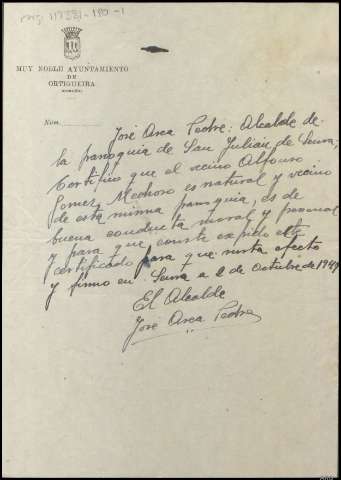 MUY NOBLE AYUNTAMIENTO
DE
ORTIGUEIRA
Núm.
José Area Pedre: Alcalde de
la parroquia de San Julian de Senra,
Certifico que el vecino Alfonso
Gomez Mechoso es natural y vecino
de esta misma parroquia, es de
buena conducta moral y personal
y para que conste expido este
certificado para que surta efecto
y firmo en Senra a 2 de Octubre de 1949
El Alcalde
José Area Pedre